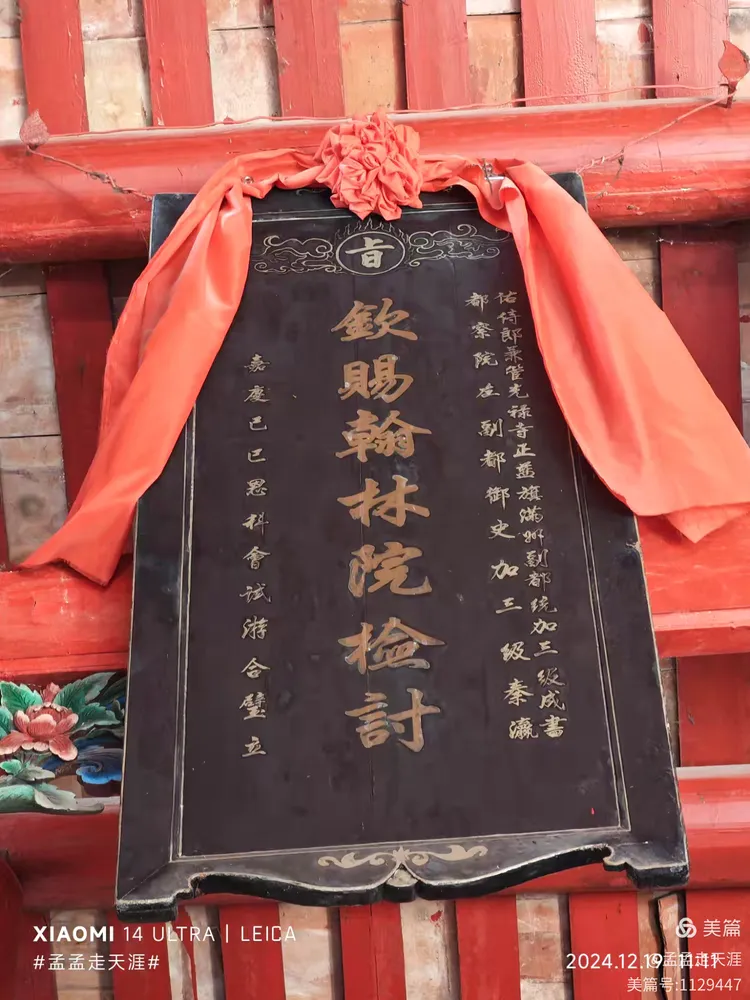 旨
佑侍郎兼管光禄寺正藍旗滿州副都統加三級成書
都察院左副都御史加三級秦瀛
欽賜翰林院檢討
嘉慶己巳恩科會試游合璧立
XIAOMI 14 ULTRA | LEICA
#孟孟走天涯#
美篇
2024.12.19 11:41
@孟孟走天涯
美篇号:1129447